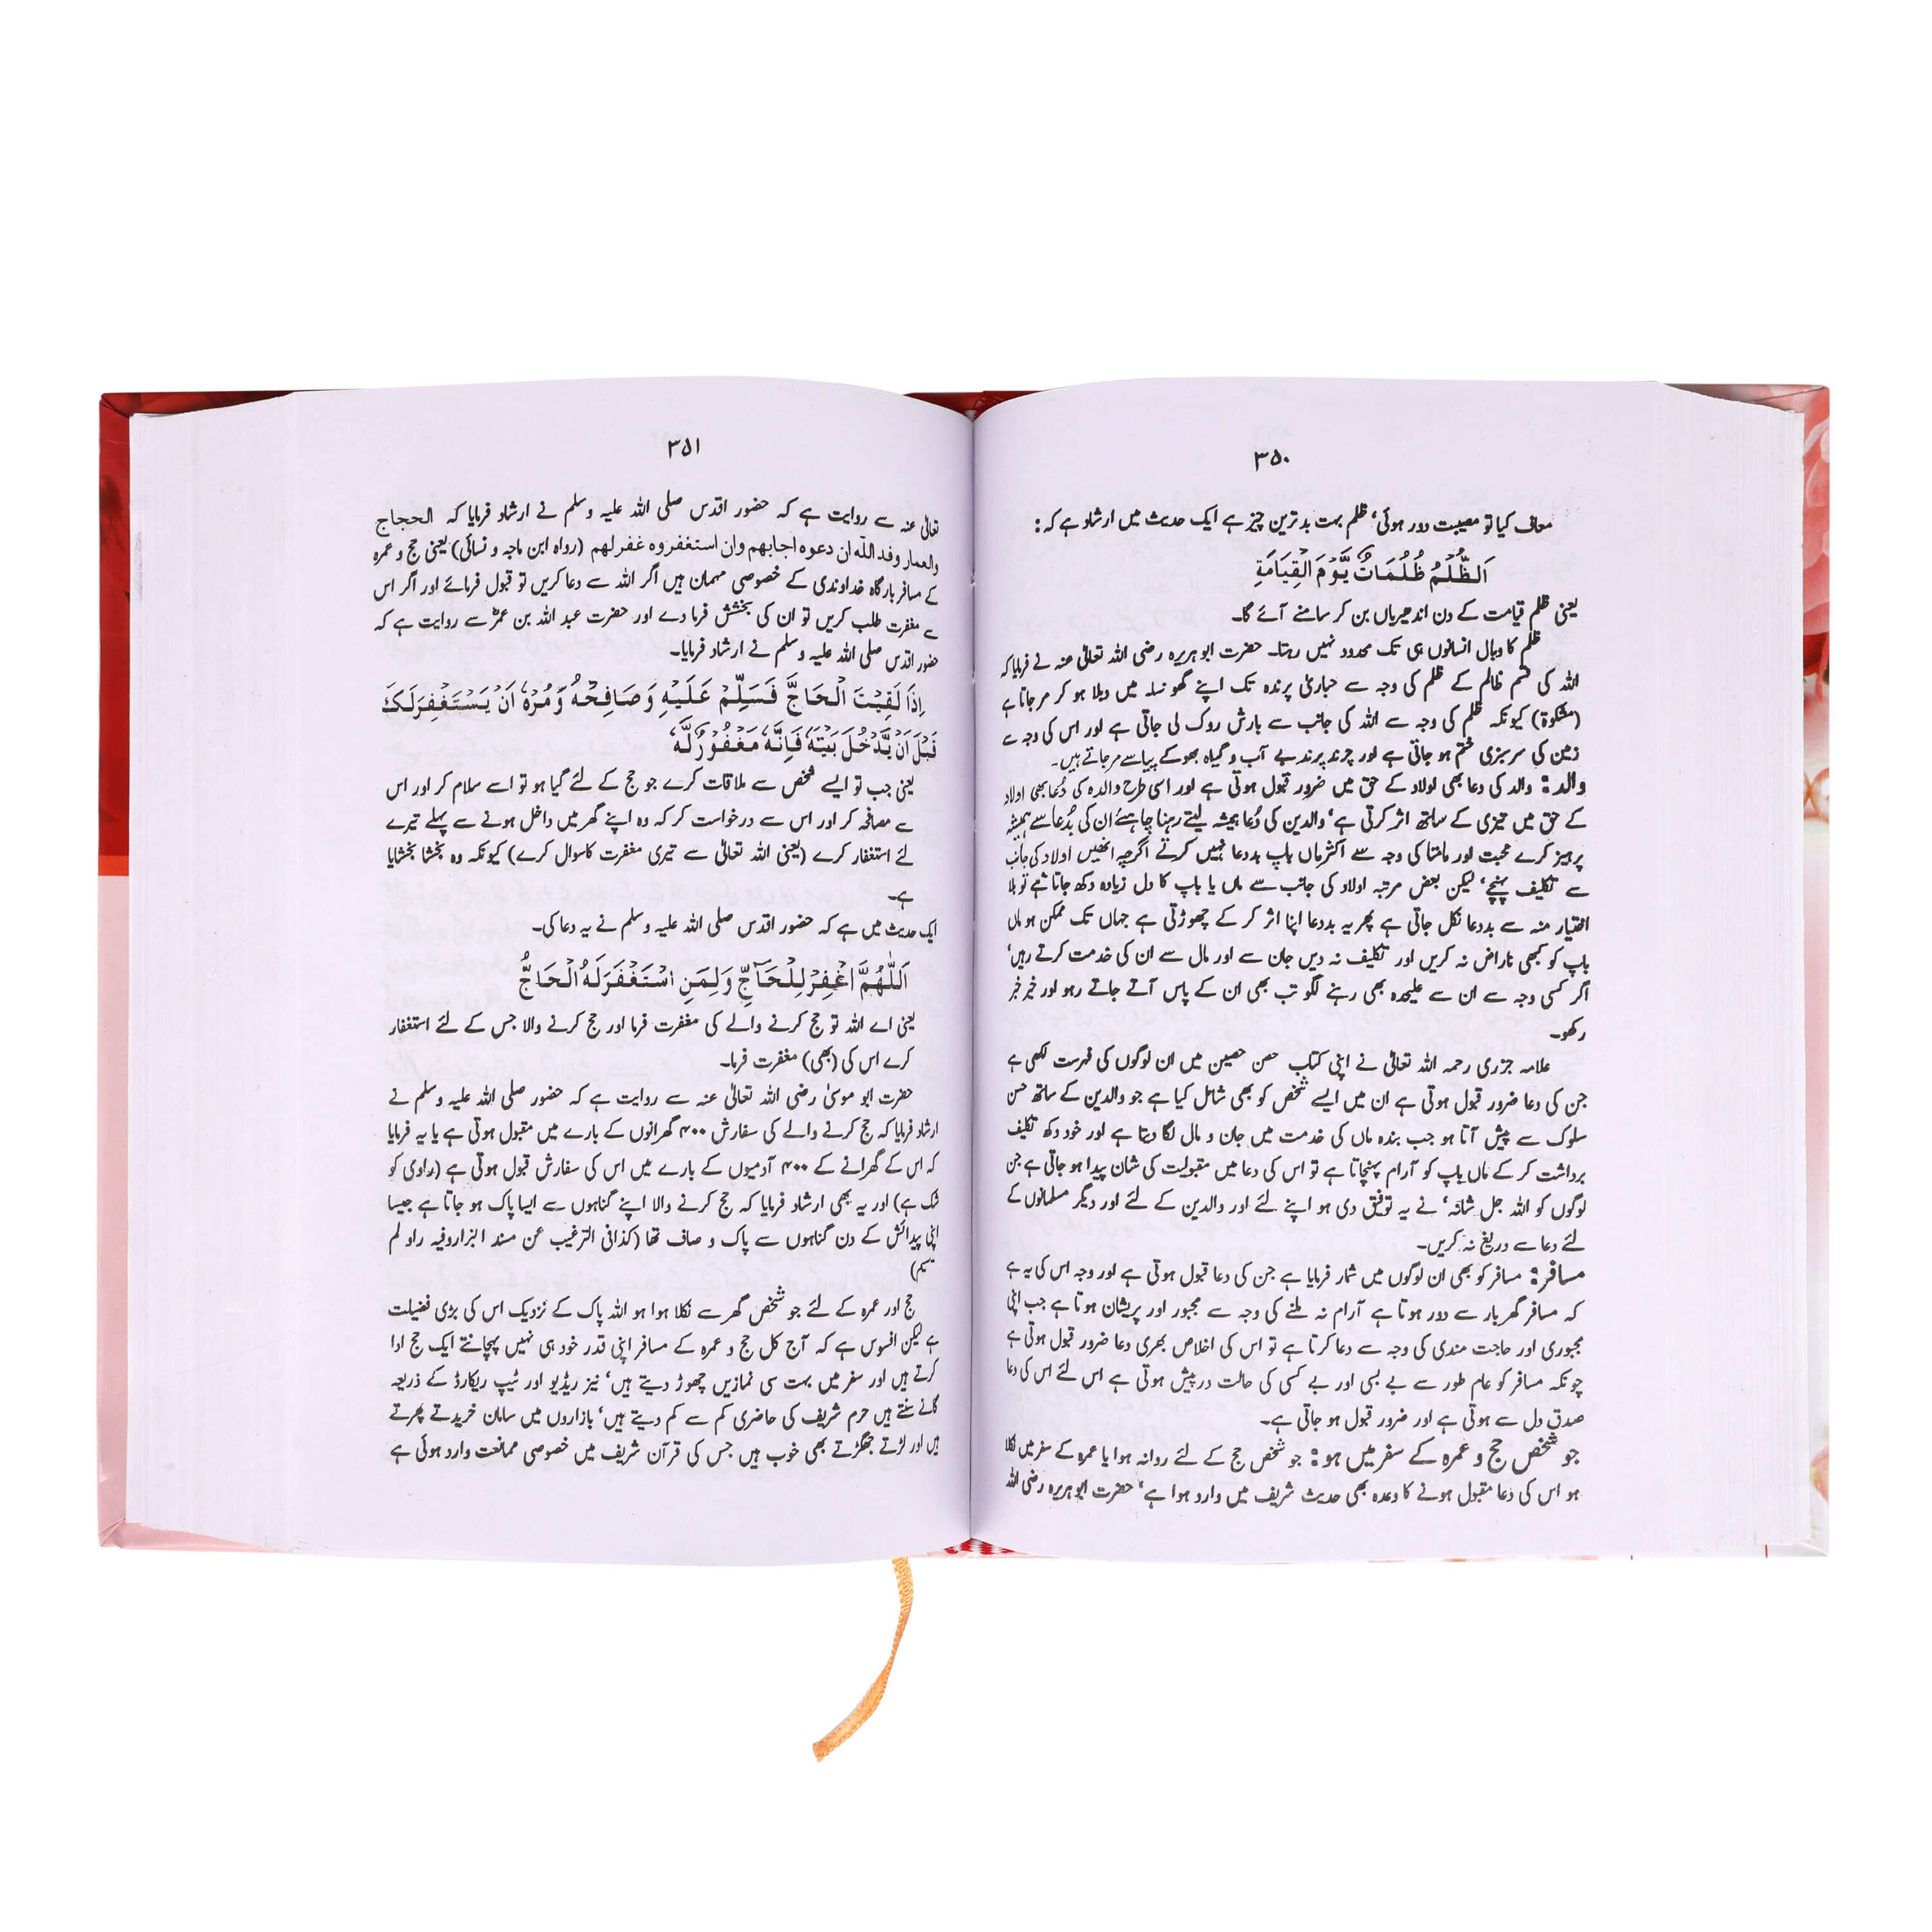 ۳۵۰
معاف کیا تو مصیبت دور ہوئی‘ ظلم بہت بدترین چیز ہے ایک حدیث میں ارشاد ہے کہ :
اَلظُّلْمُ ظُلُمَاتٌ يَّوْمَ الْقِيَامَةِ
یعنی ظلم قیامت کے دن اندھیریاں بن کر سامنے آئے گا۔
ظلم کا وبال انسانوں ہی تک محدود نہیں رہتا۔ حضرت ابو ہریرہ رضی اللہ تعالیٰ عنہ نے فرمایا کہ
اللہ کی قسم ظالم کے ظلم کی وجہ سے حباریٰ پرندہ تک اپنے گھونسلہ میں دبلا ہو کر مر جاتا ہے
(مشکوٰۃ) کیونکہ ظلم کی وجہ سے اللہ کی جانب سے بارش روک لی جاتی ہے اور اس کی وجہ سے
زمین کی سرسبزی ختم ہو جاتی ہے اور چرند پرند بے آب و گیاہ بھوکے پیاسے مر جاتے ہیں۔
والد : والد کی دعا بھی اولاد کے حق میں ضرور قبول ہوتی ہے اور اسی طرح والدہ کی دُعا بھی اولاد
کے حق میں تیزی کے ساتھ اثر کرتی ہے‘ والدین کی دُعا ہمیشہ لیتے رہنا چاہئے ان کی بددُعا سے ہمیشہ
پرہیز کرے محبت اور مامتا کی وجہ سے اکثر ماں باپ بددعا نہیں کرتے اگرچہ انھیں اولاد کی جانب
سے تکلیف پہنچے‘ لیکن بعض مرتبہ اولاد کی جانب سے ماں یا باپ کا دل زیادہ دکھ جاتا ہے تو بلا
اختیار منہ سے بددعا نکل جاتی ہے پھر یہ بددعا اپنا اثر کر کے چھوڑتی ہے جہاں تک ممکن ہو ماں
باپ کو کبھی ناراض نہ کریں اور تکلیف نہ دیں جان سے اور مال سے ان کی خدمت کرتے رہیں‘
اگر کسی وجہ سے ان سے علیحدہ بھی رہنے لگو تب بھی ان کے پاس آتے جاتے رہو اور خیر خبر
رکھو۔
علامہ جزری رحمہ اللہ تعالیٰ نے اپنی کتاب حصن حصین میں ان لوگوں کی فہرست لکھی ہے
جن کی دعا ضرور قبول ہوتی ہے ان میں ایسے شخص کو بھی شامل کیا ہے جو والدین کے ساتھ حسن
سلوک سے پیش آتا ہو جب بندہ ماں کی خدمت میں جان و مال لگا دیتا ہے اور خود دکھ تکلیف
برداشت کر کے ماں باپ کو آرام پہنچاتا ہے تو اس کی دعا میں مقبولیت کی شان پیدا ہو جاتی ہے جن
لوگوں کو اللہ جل شانہ‘ نے یہ توفیق دی ہو اپنے لئے اور والدین کے لئے اور دیگر مسلمانوں کے
لئے دعا سے دریغ نہ کریں۔
مسافر : مسافر کو بھی ان لوگوں میں شمار فرمایا ہے جن کی دعا قبول ہوتی ہے اور وجہ اس کی یہ ہے
کہ مسافر گھر بار سے دور ہوتا ہے آرام نہ ملنے کی وجہ سے مجبور اور پریشان ہوتا ہے جب اپنی
مجبوری اور حاجت مندی کی وجہ سے دعا کرتا ہے تو اس کی اخلاص بھری دعا ضرور قبول ہوتی ہے
چونکہ مسافر کو عام طور سے بے بسی اور بے کسی کی حالت درپیش ہوتی ہے اس لئے اس کی دعا
صدق دل سے ہوتی ہے اور ضرور قبول ہو جاتی ہے۔
جو شخص حج و عمرہ کے سفر میں ہو : جو شخص حج کے لئے روانہ ہوا یا عمرہ کے سفر میں نکلا
ہو اس کی دعا مقبول ہونے کا وعدہ بھی حدیث شریف میں وارد ہوا ہے‘ حضرت ابو ہریرہ رضی اللہ
۳۵۱
تعالیٰ عنہ سے روایت ہے کہ حضور اقدس صلی اللہ علیہ وسلم نے ارشاد فرمایا کہ الحجاج
والعمار وفد اللّٰه ان دعوه اجابهم وان استغفروه غفر لهم (رواہ ابن ماجہ و نسائی) یعنی حج و عمرہ
کے مسافر بارگاہ خداوندی کے خصوصی مہمان ہیں اگر اللہ سے دعا کریں تو قبول فرمائے اور اگر اس
سے مغفرت طلب کریں تو ان کی بخشش فرما دے اور حضرت عبد اللہ بن عمرؓ سے روایت ہے کہ
حضور اقدس صلی اللہ علیہ وسلم نے ارشاد فرمایا۔
اِذَا لَقِيْتَ الْحَاجَّ فَسَلِّمْ عَلَيْهِ وَصَافِحْهُ وَمُرْهُ اَنْ يَسْتَغْفِرَ لَكَ
قَبْلَ اَنْ يَّدْخُلَ بَيْتَهٗ فَاِنَّهٗ مَغْفُوْرٌ لَّهٗ
یعنی جب تو ایسے شخص سے ملاقات کرے جو حج کے لئے گیا ہو تو اسے سلام کر اور اس
سے مصافحہ کر اور اس سے درخواست کر کہ وہ اپنے گھر میں داخل ہونے سے پہلے تیرے
لئے استغفار کرے (یعنی اللہ تعالیٰ سے تیری مغفرت کا سوال کرے) کیونکہ وہ بخشا بخشایا
ہے۔
ایک حدیث میں ہے کہ حضور اقدس صلی اللہ علیہ وسلم نے یہ دعا کی۔
اَللّٰهُمَّ اغْفِرْ لِلْحَآجِّ وَلِمَنِ اسْتَغْفَرَ لَهُ الْحَاجُّ
یعنی اے اللہ تو حج کرنے والے کی مغفرت فرما اور حج کرنے والا جس کے لئے استغفار
کرے اس کی (بھی) مغفرت فرما۔
حضرت ابو موسیٰ رضی اللہ تعالیٰ عنہ سے روایت ہے کہ حضور صلی اللہ علیہ وسلم نے
ارشاد فرمایا کہ حج کرنے والے کی سفارش ۴۰۰ گھرانوں کے بارے میں مقبول ہوتی ہے یا یہ فرمایا
کہ اس کے گھرانے کے ۴۰۰ آدمیوں کے بارے میں اس کی سفارش قبول ہوتی ہے (راوی کو
شک ہے) اور یہ بھی ارشاد فرمایا کہ حج کرنے والا اپنے گناہوں سے ایسا پاک ہو جاتا ہے جیسا
اپنی پیدائش کے دن گناہوں سے پاک و صاف تھا (کذافی الترغیب عن مسند البزار وفیہ راو لم
یسم)
حج اور عمرہ کے لئے جو شخص گھر سے نکلا ہوا ہو اللہ پاک کے نزدیک اس کی بڑی فضیلت
ہے لیکن افسوس ہے کہ آج کل حج و عمرہ کے مسافر اپنی قدر خود ہی نہیں پہچانتے ایک حج ادا
کرتے ہیں اور سفر میں بہت سی نمازیں چھوڑ دیتے ہیں‘ نیز ریڈیو اور ٹیپ ریکارڈ کے ذریعہ
گانے سنتے ہیں حرم شریف کی حاضری کم سے کم دیتے ہیں‘ بازاروں میں سامان خریدتے پھرتے
ہیں اور لڑتے جھگڑتے بھی خوب ہیں جس کی قرآن شریف میں خصوصی ممانعت وارد ہوئی ہے